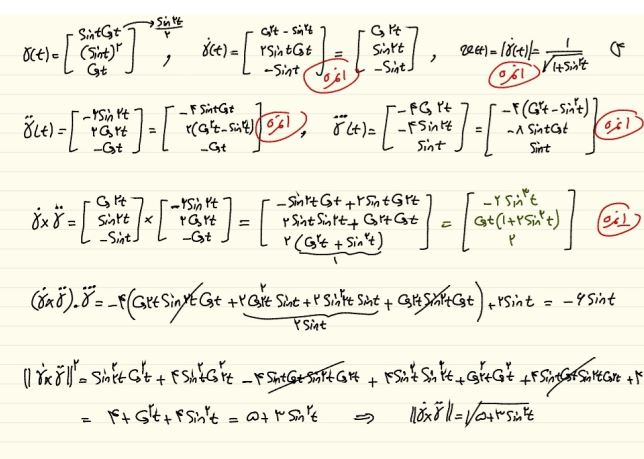 γ(t) = [Sint Cost ; (Sint)^۲ ; Cost] → Sin۲t/۲ , γ̇(t) = [Cos^۲t - Sin^۲t ; ۲Sint Cost ; -Sint] = [Cos۲t ; Sin۲t ; -Sint] ۱نمره , v(t) = |γ̇(t)| = 1/√(1+Sin^۲t) ۱نمره
γ̈(t) = [-۲Sin۲t ; ۲Cos۲t ; -Cost] = [-۴Sint Cost ; ۲(Cos^۲t - Sin^۲t) ; -Cost] ۱نمره , γ⃛(t) = [-۴Cos۲t ; -۴Sin۲t ; Sint] = [-۴(Cos^۲t - Sin^۲t) ; -۸Sint Cost ; Sint] ۱نمره
γ̇×γ̈ = [Cos۲t ; Sin۲t ; -Sint] × [-۲Sin۲t ; ۲Cos۲t ; -Cost] = [-Sin۲t Cost + ۲Sint Cos۲t ; ۲Sint Sin۲t + Cos۲t Cost ; ۲(Cos^۲t + Sin^۲t)] = [-۲Sin^۳t ; Cost(1+۲Sin^۲t) ; ۲] ۱نمره
1
(γ̇×γ̈).γ⃛ = -۴(Cos۲t Sin۲t Cost + ۲Cos^۲۲t Sint + ۲Sin^۲۲t Sint + Cos۲t Sin۲t Cost) + ۲Sint = -۶Sint
۲Sint
||γ̇×γ̈||^۲ = Sin^۲۲t Cos^۲t + ۴Sin^۲t Cos^۲۲t - ۴Sint Cost Sin۲t Cos۲t + ۴Sin^۲t Sin^۲۲t + Cos^۲۲t Cos^۲t + ۴Sint Cost Sin۲t Cos۲t + ۴
= ۴ + Cos^۲t + ۴Sin^۲t = ۵ + ۳Sin^۲t ⇒ ||γ̇×γ̈|| = √(۵+۳Sin^۲t)